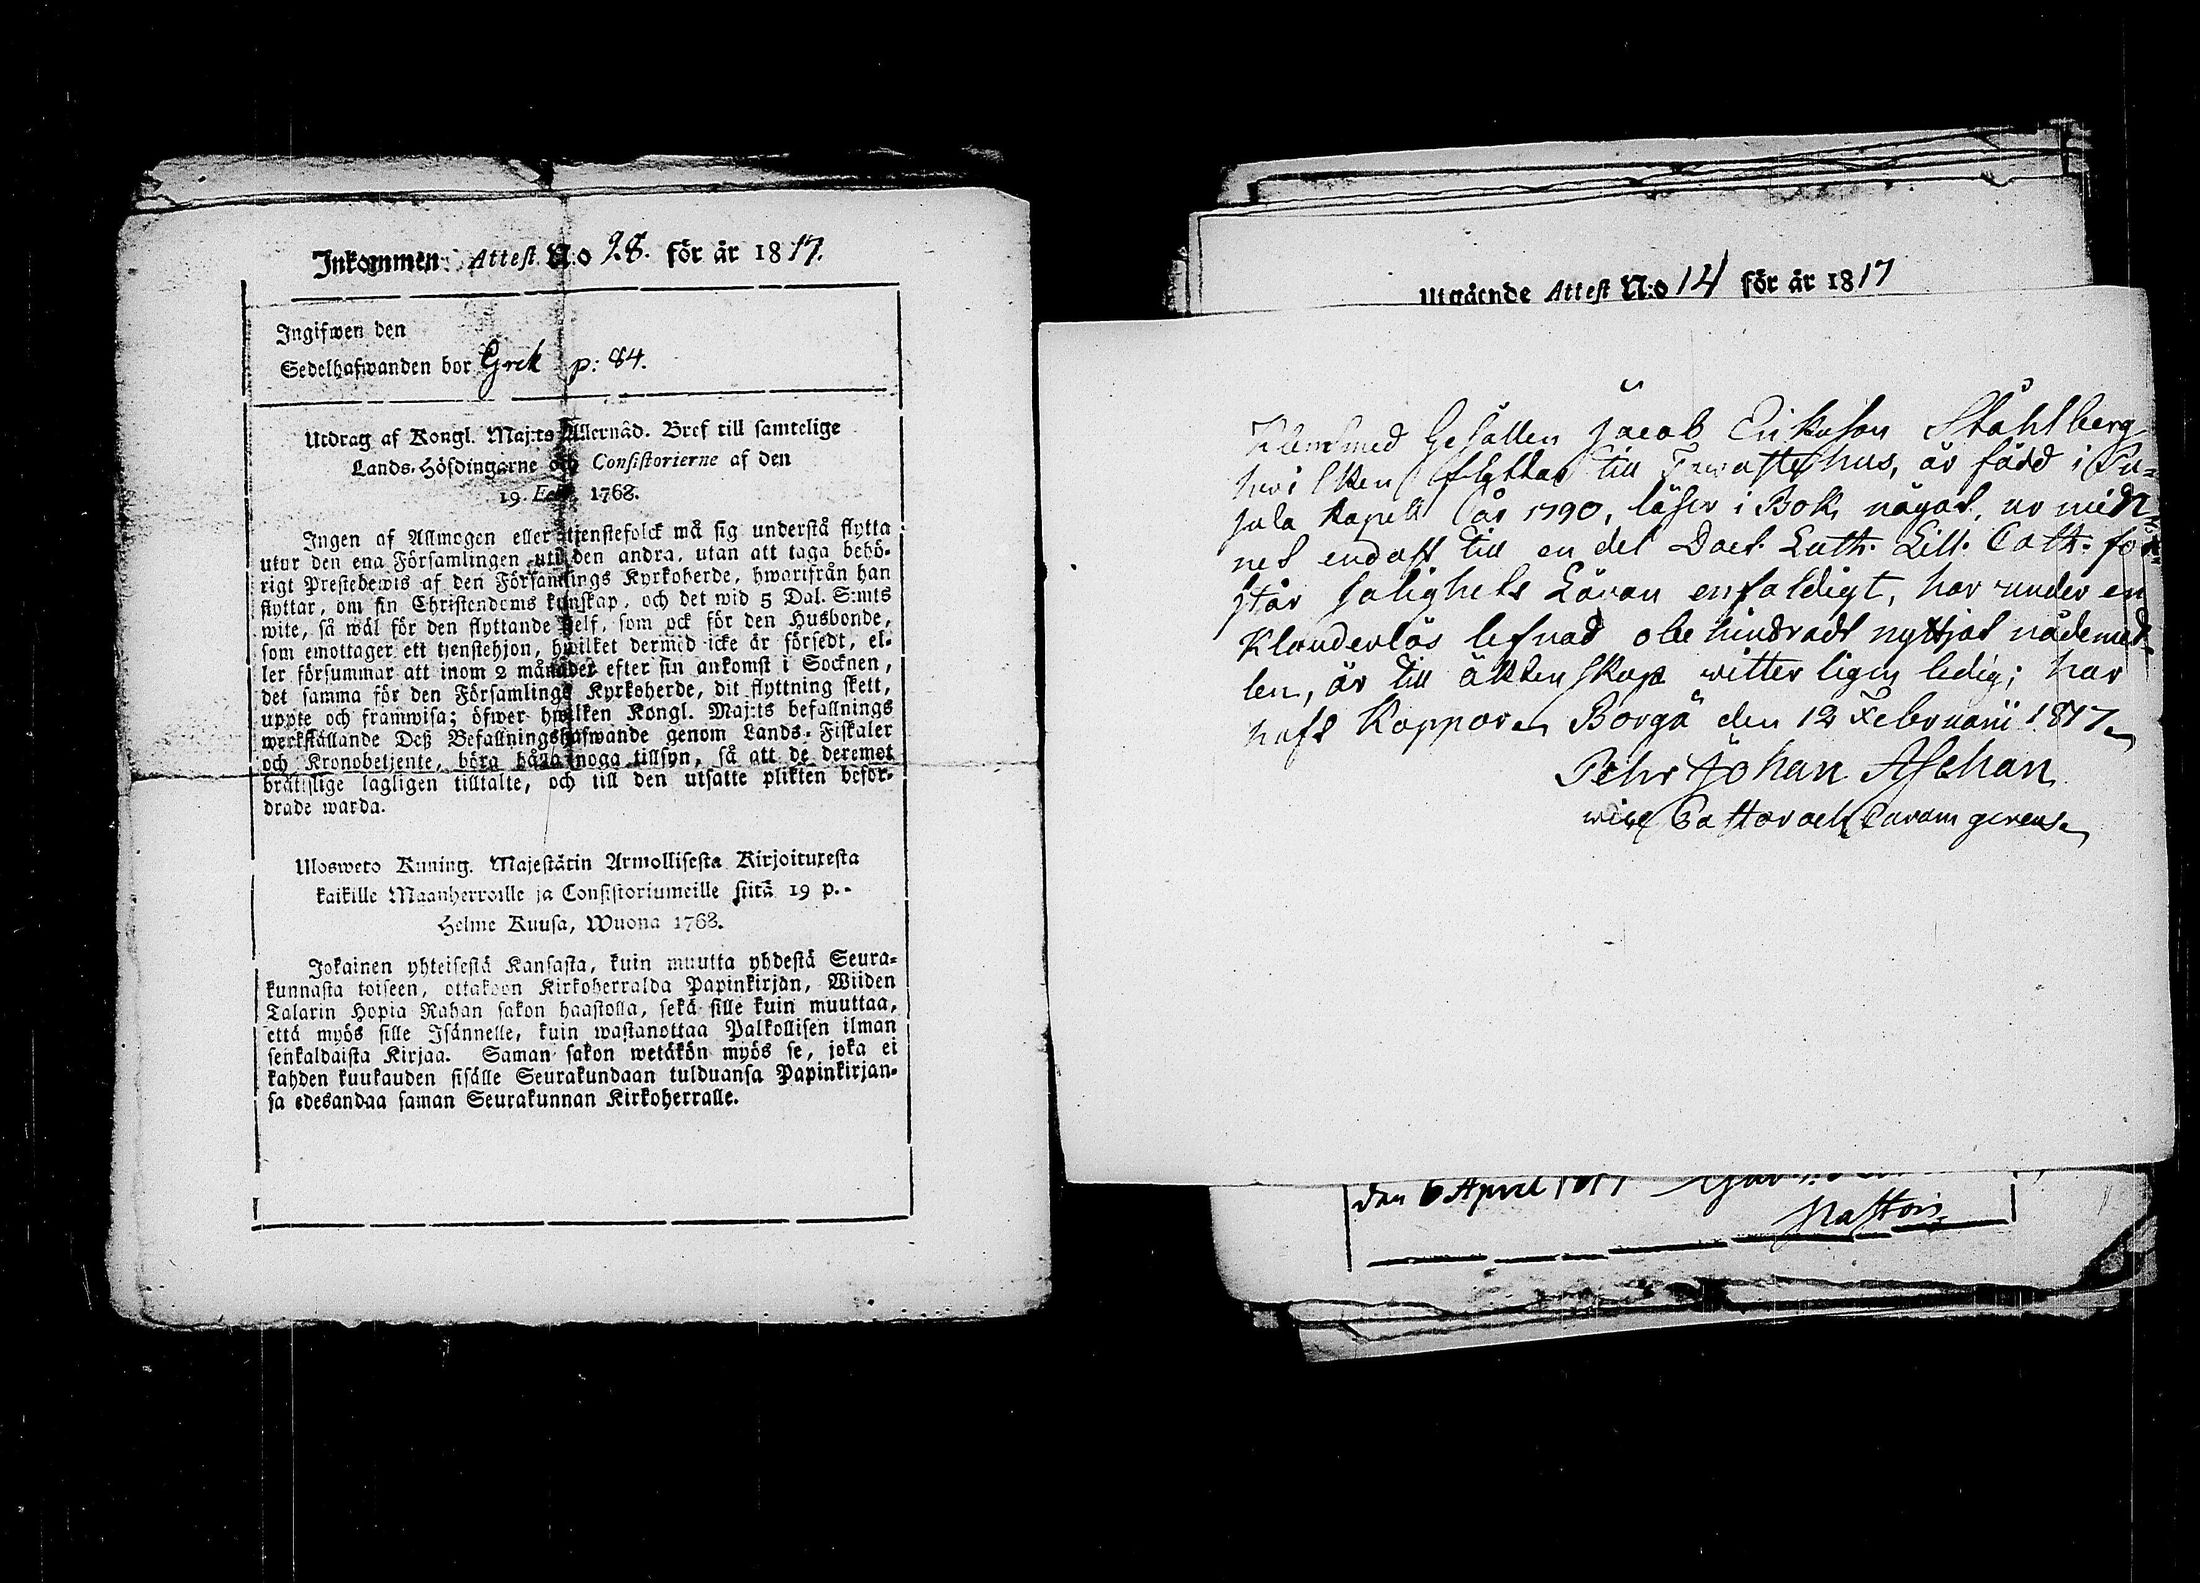 Inkommen Attest N:o 28. för år 1817.
Ingifwen den
Sedelhafwanden bor Grek p: 84.
Utdrag af Kongl. Maj:ts Allernåd. Bref till samtelige
Lands-Höfdingarne och Consistorierne af den
19. Febr. 1768.
Ingen af Allmogen eller tjenstefolck må sig understå flytta
utur den ena Församlingen uti den andra, utan att taga behö-
rigt Prestebewis af den Församlings Kyrkoherde, hwarifrån han
flyttar, om sin Christendoms kunskap, och det wid 5 Dal. S:mts
wite, så wäl för den flyttande self, som ock för den Husbonde,
som emottager ett tjenstehjon, hwilket dermed icke är försedt, el-
ler försummar att inom 2 månader efter sin ankomst i Socknen,
det samma för den Församlings Kyrkoherde, dit flyttning skett,
uppte och framwisa; öfwer hwilken Kongl. Maj:ts befallnings
werkställande Deß Befallningshafwande genom Lands-Fiskaler
och Kronobetjente, böra hålla noga tillsyn, så att de deremot
bråtislige lagligen tilltalte, och till den utsatte plikten befor-
drade warda.
Ulosweto Kuning. Majestätin Armollisesta Kirjoituxesta
kaikille Maanherroille ja Consistoriumeille siitä 19 p.-
Helme Kuusa, Wuona 1768.
Jokainen yhteisestä Kansasta, kuin muutta yhdestä Seura-
kunnasta toiseen, ottakoon Kirkoherralda Papinkirjan, Wiiden
Talarin Hopia Rahan sakon haastolla, sekä sille kuin muuttaa,
että myös sille Isännelle, kuin wastanottaa Palkollisen ilman
senkaldaista Kirjaa. Saman sakon wetäkön myös se, joka ei
kahden kuukauden sisälle Seurakundaan tulduansa Papinkirjan-
sa edesandaa saman Seurakunnan Kirkoherralle.
Utgående Attest N:o 14 för år 1817
Klensmed Gesällen Jacob Eriksson Ståhlberg
hwilken flyttar till Tawastehus, är född i Pu-
sula Kapell år 1790, läser i Bok något, ur min
net endast till en del Doct. Luth. Lill. Cath. för
står salighets Läran enfaldigt, har under en
Klanderlös lefnad obehindradt nyttjat nådemed-
len, är till äktenskap witterligen ledig; har
haft Koppor. Borgå den 12 Februarii 1817.
Pehr Johan Aschan
wice Pastor och Curam gerens.
den 6 April 1817
Pastor